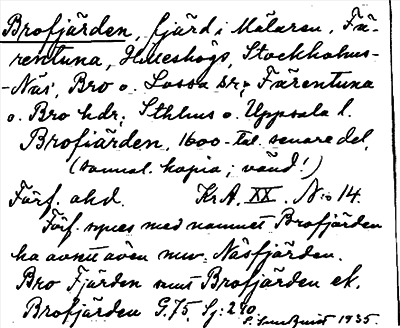 Brofjärden, fjärd i Mälaren, Fä-
rentuna, Hilleshögs, Stockholms-
-Näs, Bro o. Lossa snr; Färentuna
o. Bro hdr; Sthlms o. Uppsala l.
Brofiärden, 1600-tal. senare del.
(samml. kopia; vänd!)
Förf. okd. Kr.A. XX. N:o 14.
Förf. synes med namnet Brofjärden
ha avsett även nuv. Näsfjärden.
Bro Fjärden samt Brofjärden ek.
Brofjärden G.75, Sj: 290
1935.